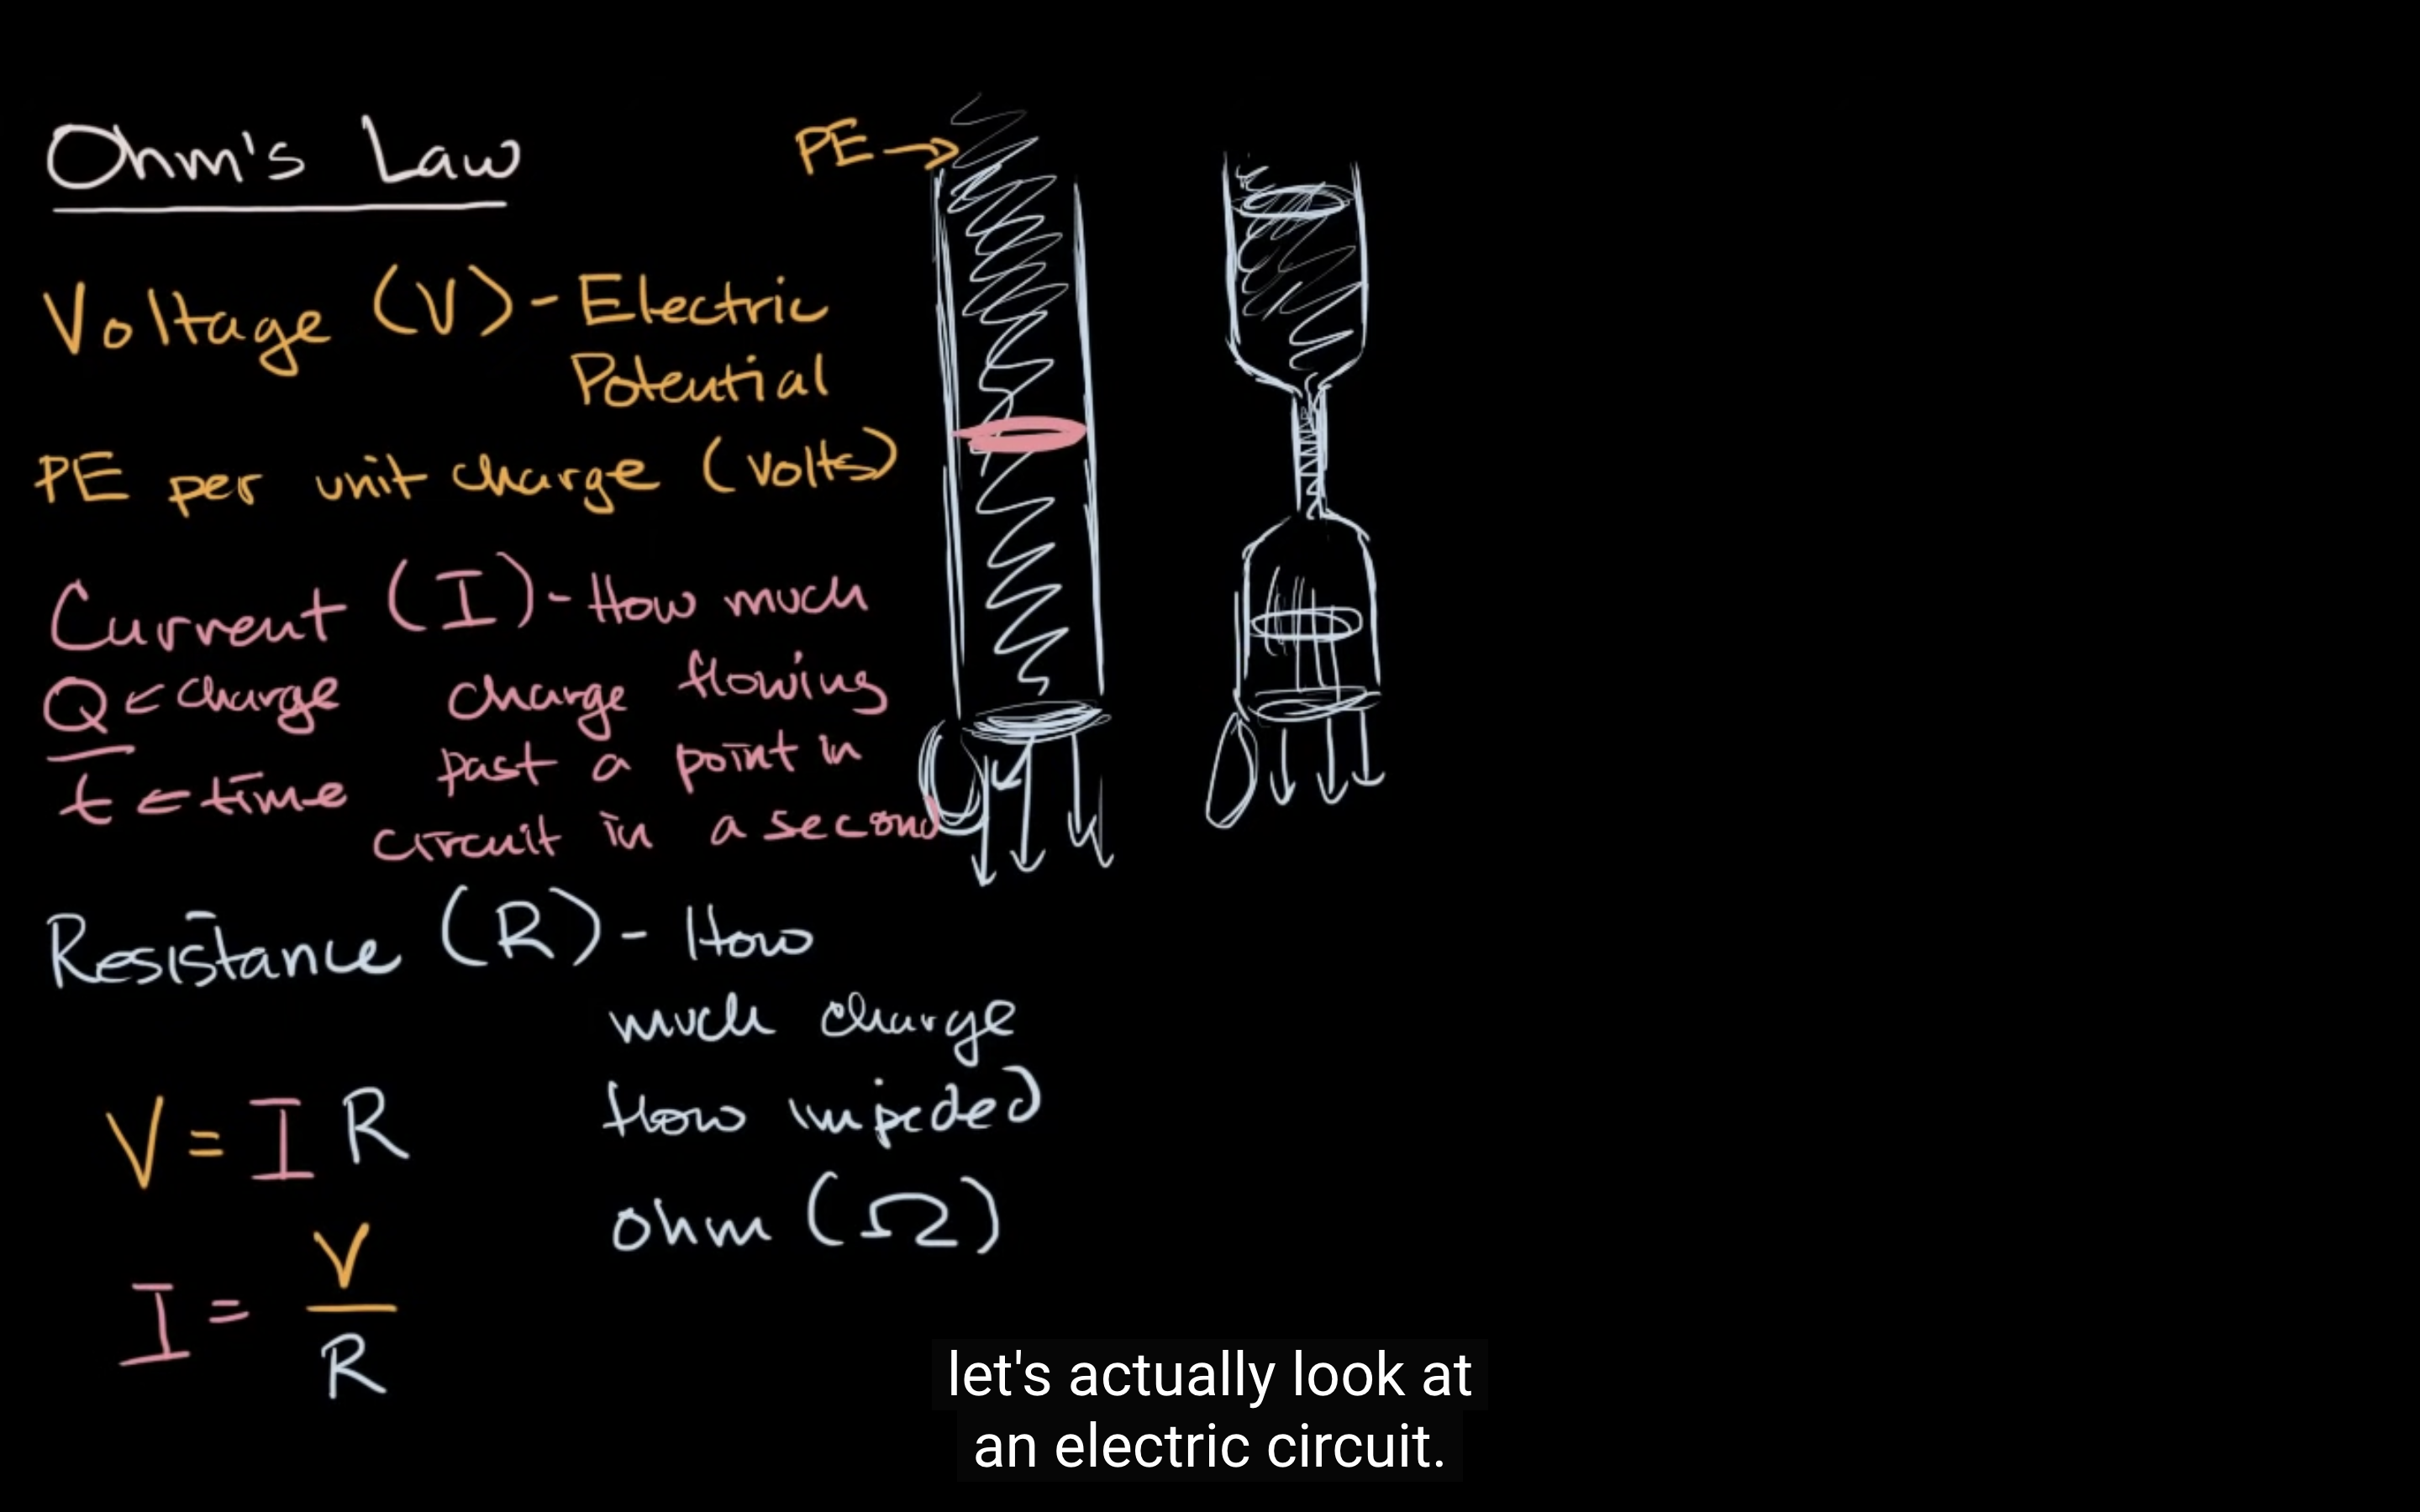 Ohm's Law
PE →
Voltage (V) - Electric
Potential
PE per unit charge (volts)
Current (I) - How much
Q ← charge
charge flowing
t ← time
past a point in
circuit in a second
Resistance (R) - How
much charge
flow impeded
ohm (Ω)
V = I R
I = V
R
let's actually look at
an electric circuit.